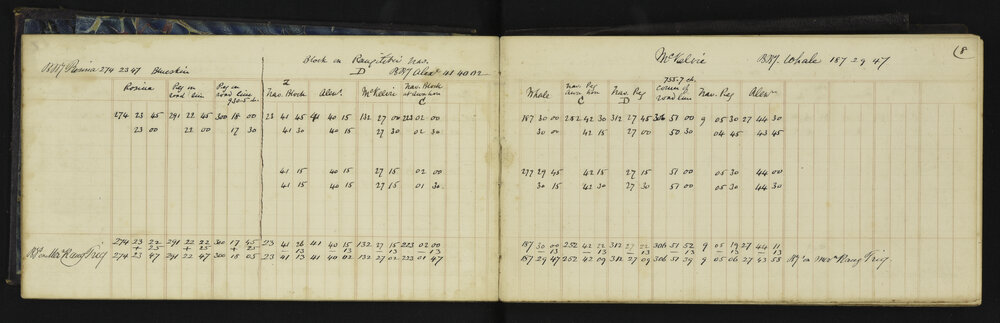 Block on Rangitikei Trav.
B.Mg Rosina 274 23 47 Blueskin D B.Mg Alexr 41 40 02
Rosina Peg in road line Peg in road line 930.5 ch. I Trav. Block Alexr McKelvie Trav. Block C
274 23 45 291 22 45 300 18 00 23 41 45 41 40 15 132 27 00 223 02 00
23 00 22 00 17 30 41 30 40 15 27 30 02 30
41 15 40 15 27 15 02 00
41 15 40 15 27 15 01 30
274 23 22 291 22 22 300 17 45 23 41 26 41 40 15 132 27 15 223 02 00
+ 25 + 25 - 13 - 13 - 13 - 13
Bg. on Mern Rang Trig 274 23 47 291 22 47 300 18 05 23 41 13 41 40 02 132 27 02 223 01 47
(8
McKelvie B.Mg. Whale 187 29 47
Whale Trav. Peg C Trav. Peg D 755.7 ch. road line Trav. Peg Alexr
187 30 00 252 42 30 312 27 45 306 51 00 9 05 30 27 44 30
30 00 42 15 27 00 50 30 04 45 43 45
277 29 45 42 15 27 15 51 00 05 30 44 00
30 15 42 30 27 30 51 00 05 30 44 30
187 30 00 252 42 22 312 27 22 306 51 52 9 05 19 27 44 11
- 13 - 13 - 13 - 13 - 13 - 13
187 29 47 252 42 09 312 27 09 306 51 39 9 05 06 27 43 58 Bg. on Mern Rang Trig